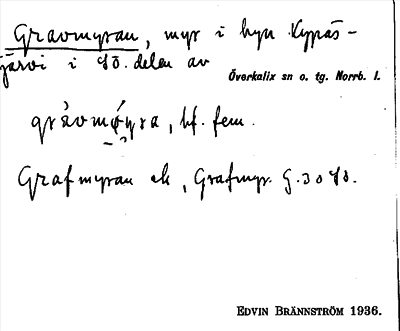 Gravmyran, myr i byn Kypäs-
järvi i SO. delen av
Överkalix sn o. tg. Norrb. l.
bf. fem.
Grafmyran ek, Grafmyr. G.
EDVIN BRÄNNSTRÖM 1936.